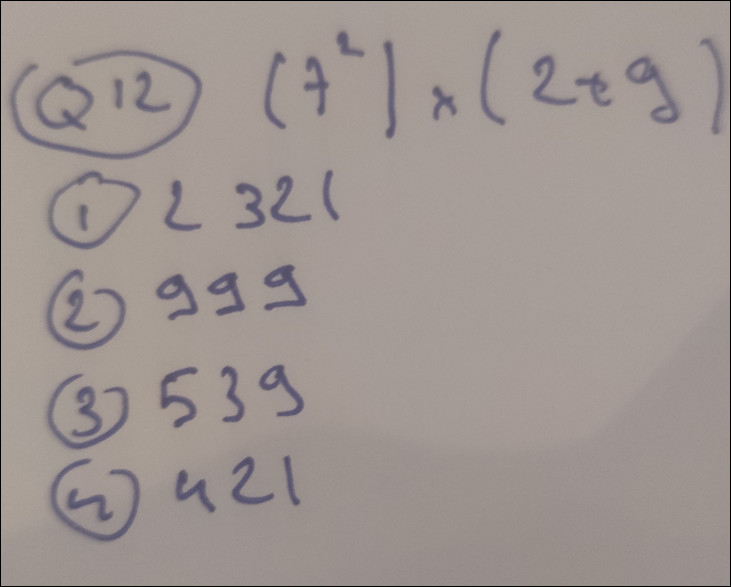 Q12 (7²) × (2+9)
① 2321
② 999
③ 539
④ 421